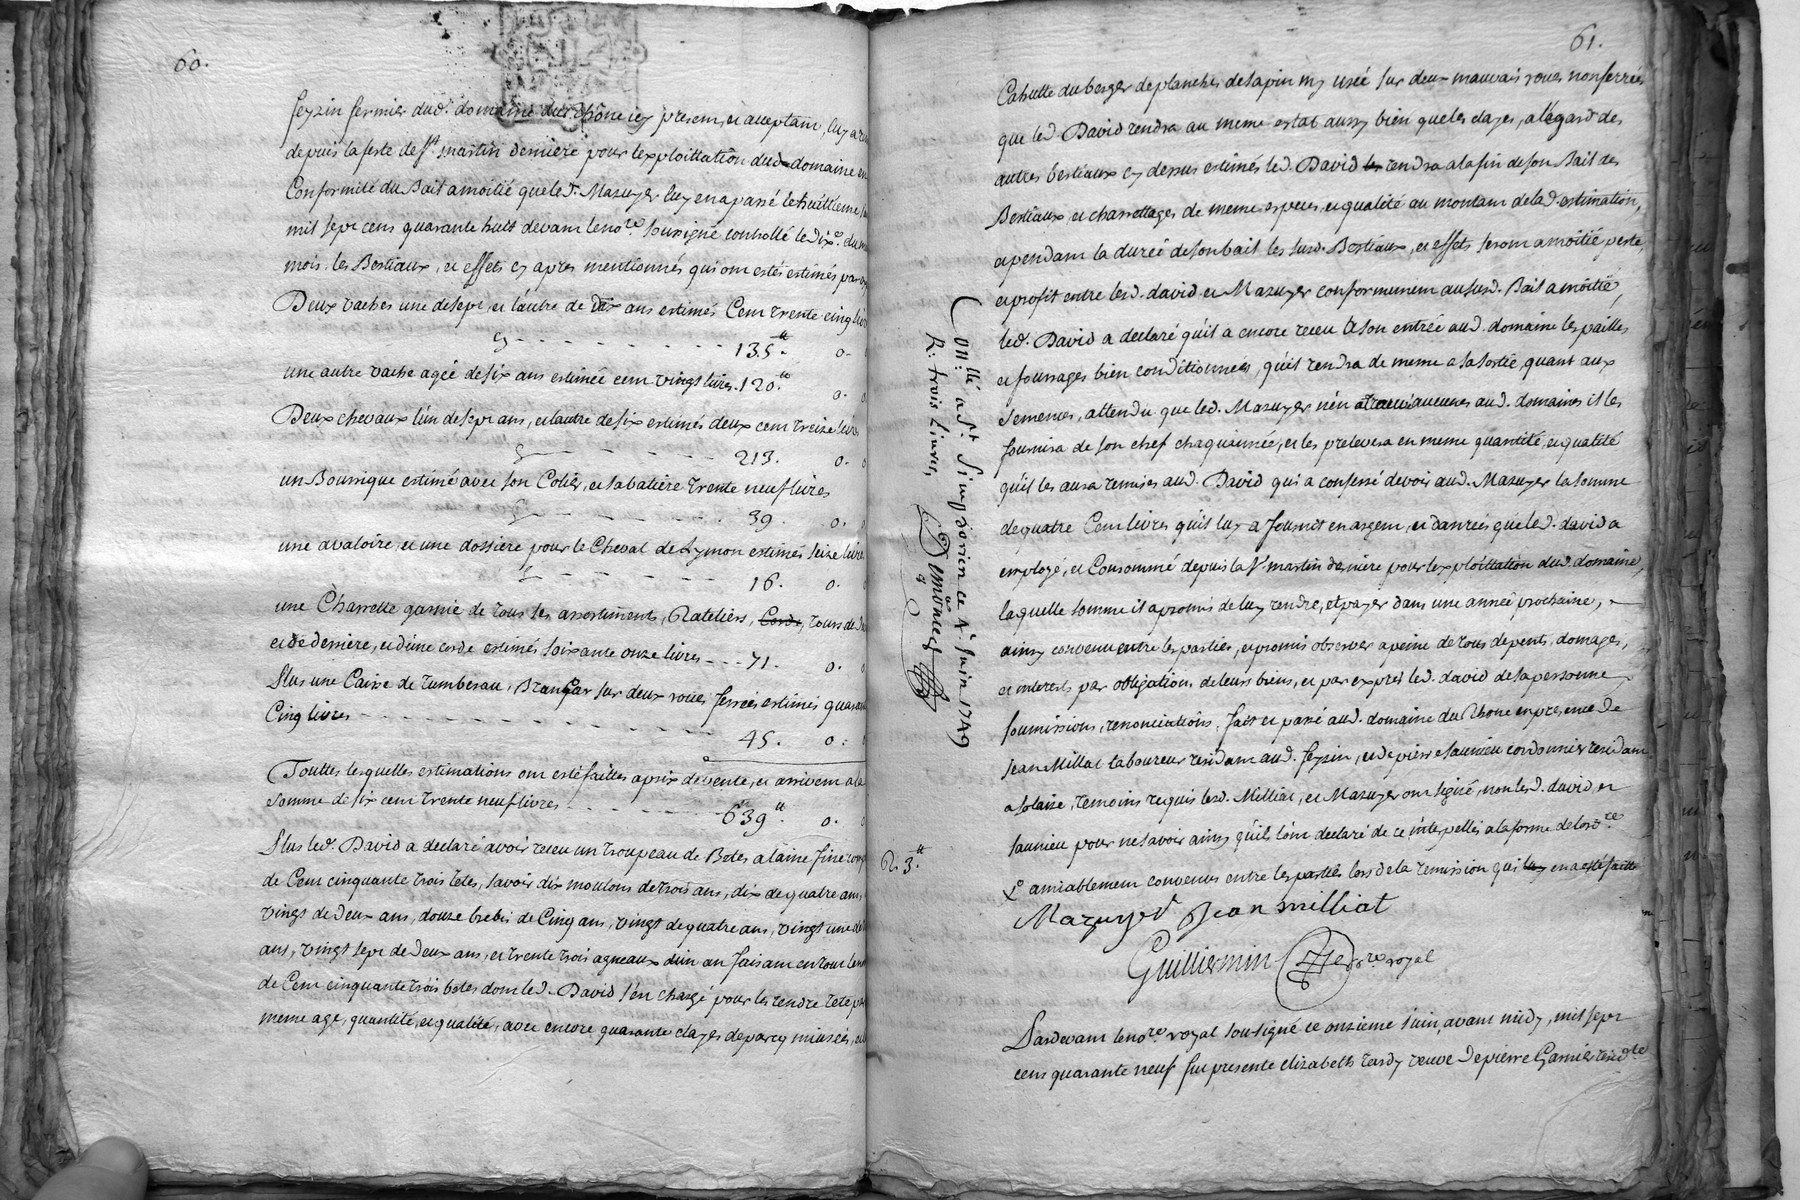 60.
feyzin fermier dud. domaine du Rhône icy present, et acceptant, luy a
depuis la feste de st. martin derniere pour lexploittation dud. domaine en
Conformité du Bail a moitié que led. Sr. Mazuyer luy en a passé le huittieme
mil sept cens quarante huit devant le nore. soussigné controllé le dixe. du
mois, les Bestiaux, et effets cy apres mentionnés qui ont estés estimés par
Deux vaches une de sept, et lautre de dix ans estimés Cent trente cinq livres
cy - - - - - - - - 135.tt o.
une autre vache agée de six ans estimée cent vingt livres. 120.tt o.
Deux chevaux lun de sept ans, et lautre de six estimés deux cent treize livres
cy - - - - - - - 213. o. o
un Bourrique estimé avec son Colier, et sa batiere trente neuf livres
cy - - - - - - - 39. o. o
une avaloire, et une dossiere pour le Cheval de Lymon estimés seize livres
cy - - - - - - - 16. o.
une Charrette garnie de tous ses assortiments, Rateliers, Corde, tours de
et de derriere, et dune corde estimés soixante onze livres - - - 71. o. o
Plus une Caisse de tumbereau, Brancar sur deux roues ferrées estimés quarante
Cinq livres - - - - - - - 45. o.
Touttes lesquelles estimations ont esté faittes a prix de vente, et arrivent a la
somme de six cent trente neuf livres - - - - - 639.tt o. o
Plus led. David a declaré avoir receu un troupeau de Betes a laine fine
de Cent cinquante trois tetes, savoir dix moutons de trois ans, dix de quatre ans,
vingt de deux ans, douze brebis de Cinq ans, vingt de quatre ans, vingt une de
ans, vingt sept de deux ans, et trente trois agneaux dun an faisant en tout
de Cent cinquante trois betes dont led. David sen chargé pour les rendre tete
meme age, quantité, et qualité, avec encore quarante clayes de parcq
61.
Cahutte du berger de planches de sapin my usée sur deux mauvais roues non ferrées
que led. David rendra au meme estat aussy bien que les clayes, a légard des
autres bestiaux cy dessus estimés led. David les rendra a la fin de son Bail des
Bestiaux, et charrettages de meme especes, et qualité au montant de lad. estimation,
et pendant la durée de son bail les susd. Bestiaux, et effets seront a moitié perte,
et profit entre lesd. david et Mazuyer conformement au susd. Bail a moitié,
led. David a declaré qu'il a encore receu a son entrée aud. domaine les pailles
et fourrages bien conditionnées, qu'il rendra de meme a sa sortie, quant aux
semences, attendu que led. Mazuyer n'en a aucunes aud. domaines il les
fournira de son chef chaqu'année, et les prelevera en meme quantité, et qualité
qu'il les aura remises aud. David qui a confessé devoir aud. Mazuyer la somme
de quatre Cent livres qu'il luy a fournit en argent, et danrées que led. david a
employé, et Consommé depuis la st. martin derniere pour lexploittation dud. domaine,
laquelle somme il a promis de luy rendre, et payer dans une année prochaine,
ainsy convenu entre les parties, et promis observer a peine de tous depents, domages,
et interets par obligation, de leurs biens, et par expres led. david de sa personne
soumissions, renonciations, fait et passé aud. domaine du Rhone en presence de
Jean Milliat laboureur residant aud. feyzin, et de pierre saunieu cordonnier residant
a solaise, temoins requis lesd. Milliat, et Mazuyer ont signé, non led. david, et
saunieu pour ne savoir ainsy qu'ils lont declaré de ce interpellés a la forme de lordce.
amiablement convenus entre les parties lors de la remission qui luy en a esté faitte
Mazuyer Jean milliat
Guilliermin nore royal
Pardevant le nore. royal soussigné ce onzieme Juin, avant midy, mil sept
cens quarante neuf fut presente elizabeth tardy veuve de pierre Garnier residte
Conllé a St. Simphorien ce 14e Juin 1749
R: trois Livres,
R. 3.tt